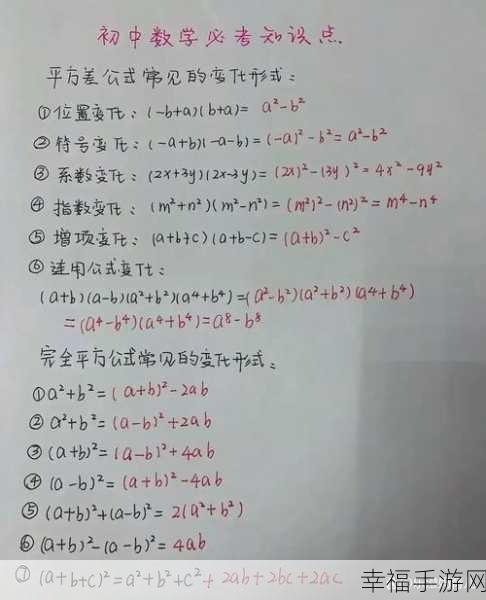 初中数学必考知识点
平方差公式常见的变化形式：
①位置变化：(-b+a)(b+a)= a²-b²
②符号变化：(-a+b)(-a-b)=(-a)²-b²=a²-b²
③系数变化：(2x+3y)(2x-3y)=(2x)²-(3y)²=4x²-9y²
④指数变化：(m²+n²)(m²-n²)=(m²)²-(n²)²=m⁴-n⁴
⑤增项变化：(a+b+c)(a+b-c)=(a+b)²-c²
⑥连用公式变化：
(a+b)(a-b)(a²+b²)(a⁴+b⁴)=(a²-b²)(a²+b²)(a⁴+b⁴)
=(a⁴-b⁴)(a⁴+b⁴)=a⁸-b⁸
完全平方公式常见的变化形式：
①a²+b²=(a+b)²-2ab
②a²+b²=(a-b)²+2ab
③(a+b)²=(a-b)²+4ab
④(a-b)²=(a+b)²-4ab
⑤(a+b)²+(a-b)²=2(a²+b²)
⑥(a+b)²-(a-b)²=4ab
⑦(a+b+c)²=a²+b²+c²+2ab+2bc+2ac
幸福手游网